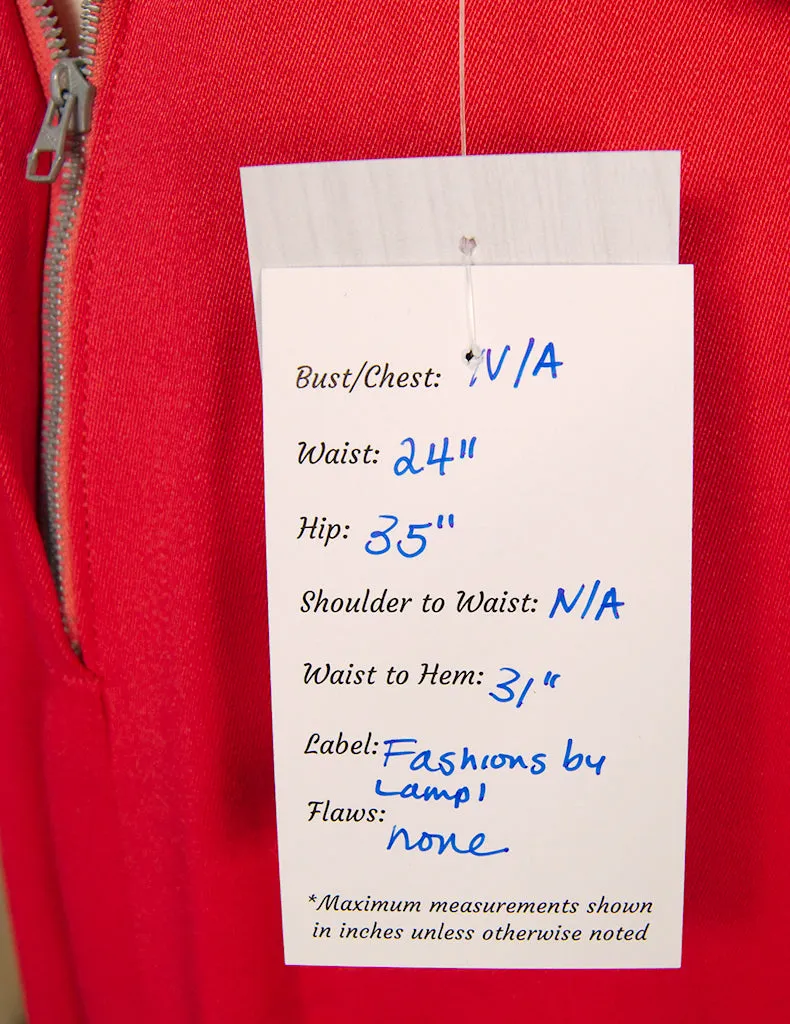 Bust/Chest: N/A
Waist: 24"
Hip: 35"
Shoulder to Waist: N/A
Waist to Hem: 31"
Label: Fashions by
Lampl
Flaws:
none
*Maximum measurements shown
in inches unless otherwise noted